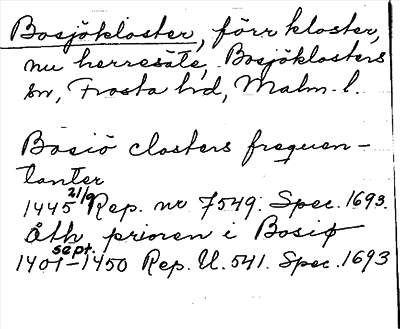 Bosjökloster, förr kloster,
nu herresäte, Bosjöklosters
sn, Frosta hd, Malm. l.
Bosiö closters frequen-
tanter
1445 21/9 Rep. nr 7549. Spec. 1693.
Åth prioren i Bosiø
1401-1450 sept. Rep. U. 541. Spec. 1693